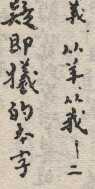 義，从羊从我——二
疑即犧的本字